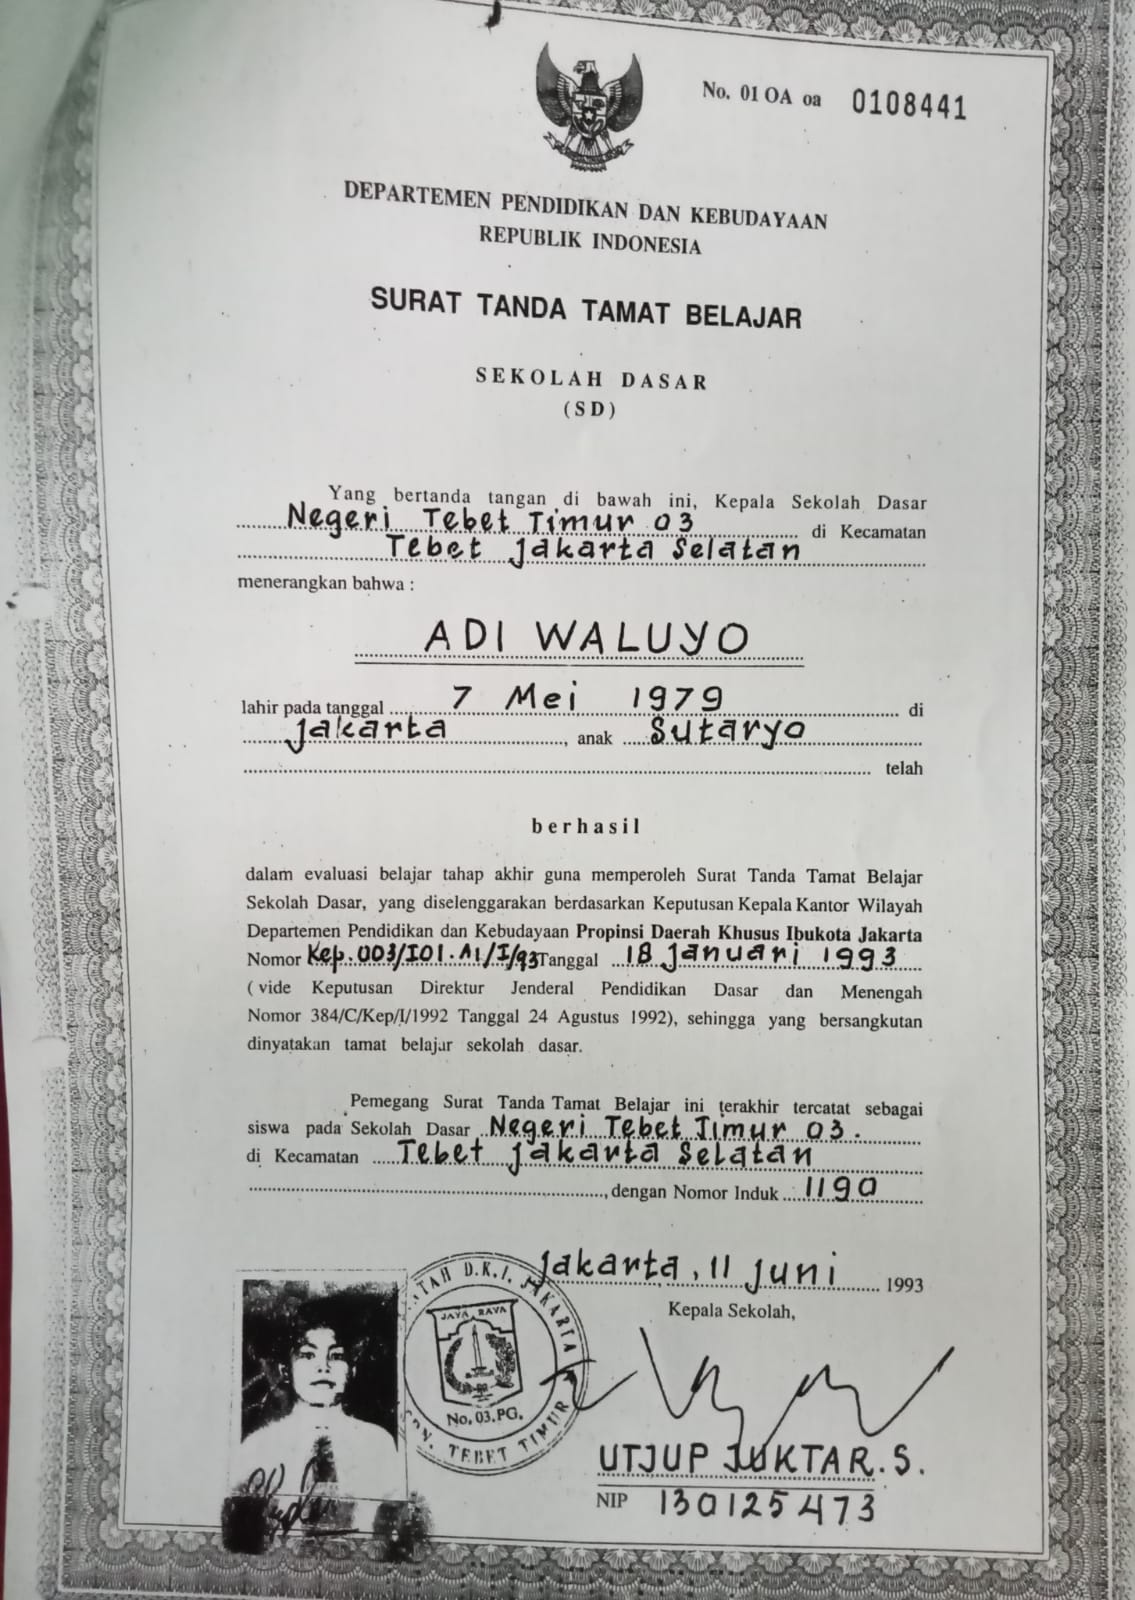 No. 01 OA oa 0108441
DEPARTEMEN PENDIDIKAN DAN KEBUDAYAAN
REPUBLIK INDONESIA
SURAT TANDA TAMAT BELAJAR
SEKOLAH DASAR
(SD)
Yang bertanda tangan di bawah ini, Kepala Sekolah Dasar
Negeri Tebet Timur 03 di Kecamatan
Tebet Jakarta Selatan
menerangkan bahwa :
ADI WALUYO
lahir pada tanggal 7 Mei 1979 di
Jakarta, anak Sutaryo
telah
berhasil
dalam evaluasi belajar tahap akhir guna memperoleh Surat Tanda Tamat Belajar
Sekolah Dasar, yang diselenggarakan berdasarkan Keputusan Kepala Kantor Wilayah
Departemen Pendidikan dan Kebudayaan Propinsi Daerah Khusus Ibukota Jakarta
Nomor Kep.003/I01.A1/I/93 Tanggal 18 Januari 1993
( vide Keputusan Direktur Jenderal Pendidikan Dasar dan Menengah
Nomor 384/C/Kep/I/1992 Tanggal 24 Agustus 1992), sehingga yang bersangkutan
dinyatakan tamat belajar sekolah dasar.
Pemegang Surat Tanda Tamat Belajar ini terakhir tercatat sebagai
siswa pada Sekolah Dasar Negeri Tebet Timur 03.
di Kecamatan Tebet Jakarta Selatan
, dengan Nomor Induk 1190
Jakarta, 11 Juni 1993
Kepala Sekolah,
D.K.I. JAKARTA
JAYA RAYA
No. 03.PG.
TEBET TIMUR
UTJUP JUKTAR. S.
NIP 130125473